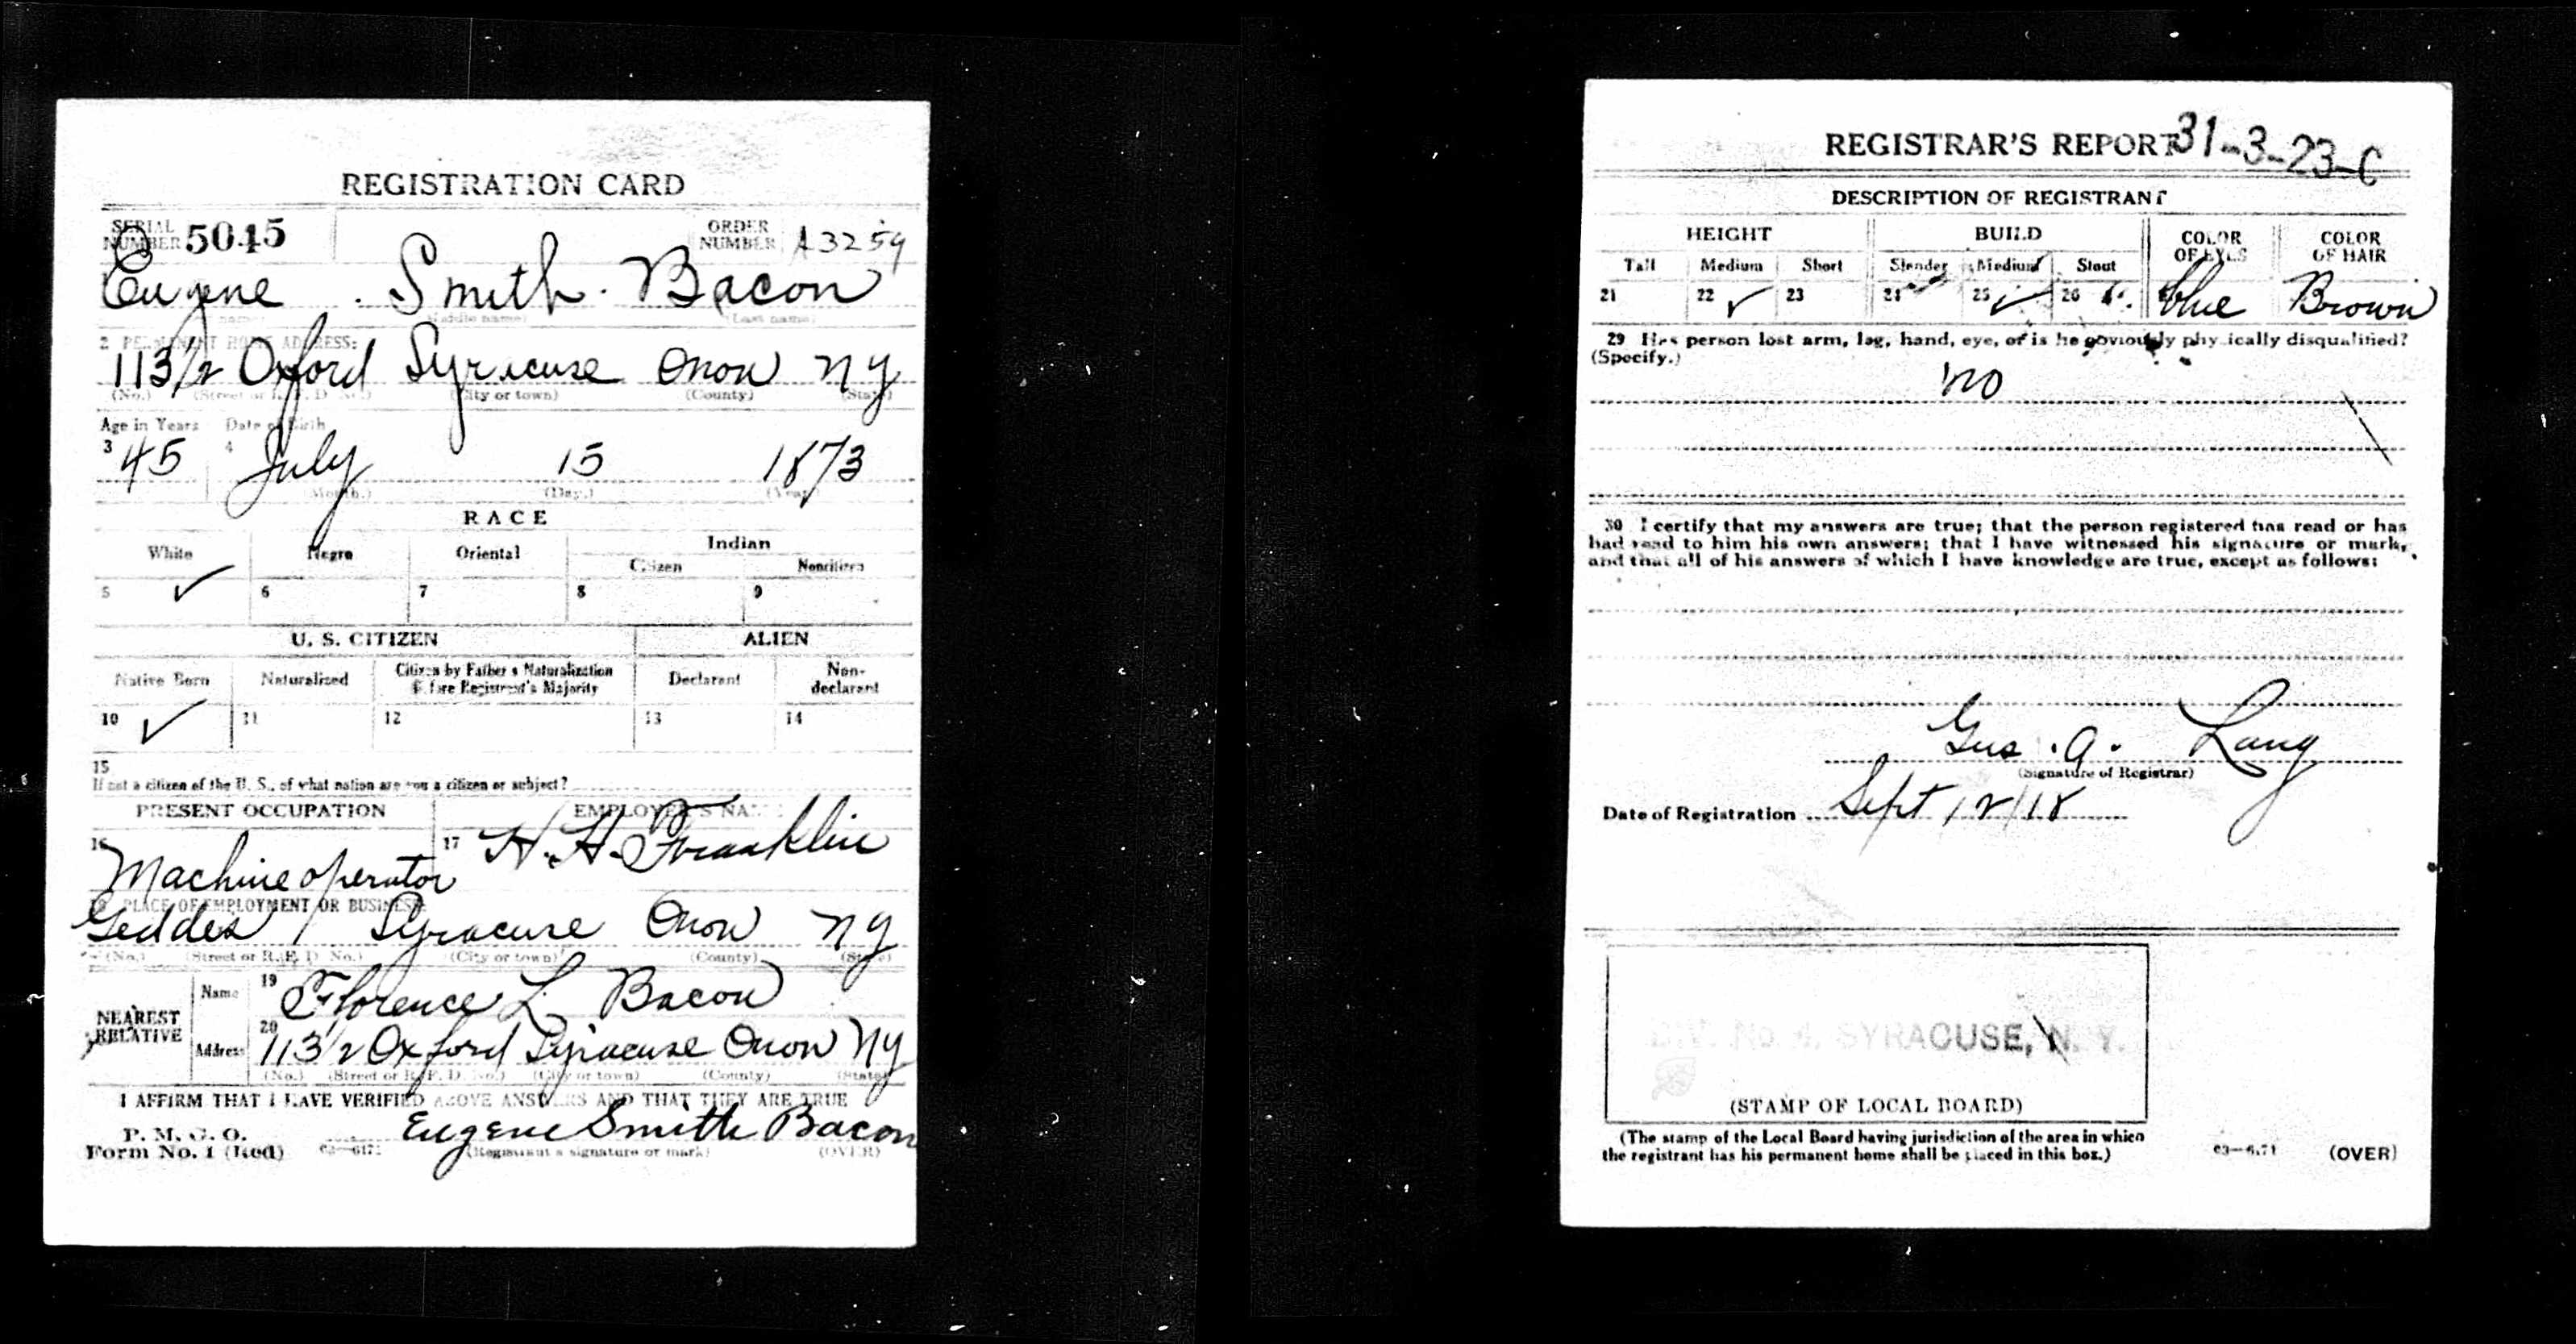 REGISTRATION CARD
SERIAL NUMBER 5045 ORDER NUMBER A3259
Eugene Smith Bacon
(Middle name) (Last name)
2 PERMANENT HOME ADDRESS:
113 1/2 Oxford Syracuse Onon NY
(No.) (Street or R. F. D. No.) (City or town) (County) (State)
Age in Years Date of Birth
3 45 4 July 15 1873
(Month.) (Day.) (Year.)
RACE
White Negro Oriental Indian
Citizen Noncitizen
5 ✓ 6 7 8 9
U. S. CITIZEN ALIEN
Native Born Naturalized Citizen by Father's Naturalization Before Registrant's Majority Declarant Non-declarant
10 ✓ 11 12 13 14
15
If not a citizen of the U. S., of what nation are you a citizen or subject?
PRESENT OCCUPATION EMPLOYER'S NAME
16 Machine operator 17 H. H. Franklin
18 PLACE OF EMPLOYMENT OR BUSINESS:
Geddes Syracuse Onon NY
(No.) (Street or R. F. D. No.) (City or town) (County) (State)
NEAREST RELATIVE Name 19 Florence L Bacon
Address 20 113 1/2 Oxford Syracuse Onon NY
(No.) (Street or R. F. D. No.) (City or town) (County) (State)
I AFFIRM THAT I HAVE VERIFIED ABOVE ANSWERS AND THAT THEY ARE TRUE
P. M. G. O.
Form No. 1 (Red) Eugene Smith Bacon
(Registrant's signature or mark) (OVER)
REGISTRAR'S REPORT 31-3-23-C
DESCRIPTION OF REGISTRANT
HEIGHT BUILD COLOR OF EYES COLOR OF HAIR
Tall Medium Short Slender Medium Stout
21 22 ✓ 23 24 25 ✓ 26 blue Brown
29 Has person lost arm, leg, hand, eye, or is he obviously physically disqualified?
(Specify.)
no
30 I certify that my answers are true; that the person registered has read or has
had read to him his own answers; that I have witnessed his signature or mark,
and that all of his answers of which I have knowledge are true, except as follows:
Gus. A. Lang
(Signature of Registrar)
Date of Registration Sept 12/18
DIV. No. 4. SYRACUSE, N. Y.
(STAMP OF LOCAL BOARD)
(The stamp of the Local Board having jurisdiction of the area in which
the registrant has his permanent home shall be placed in this box.)
(OVER)